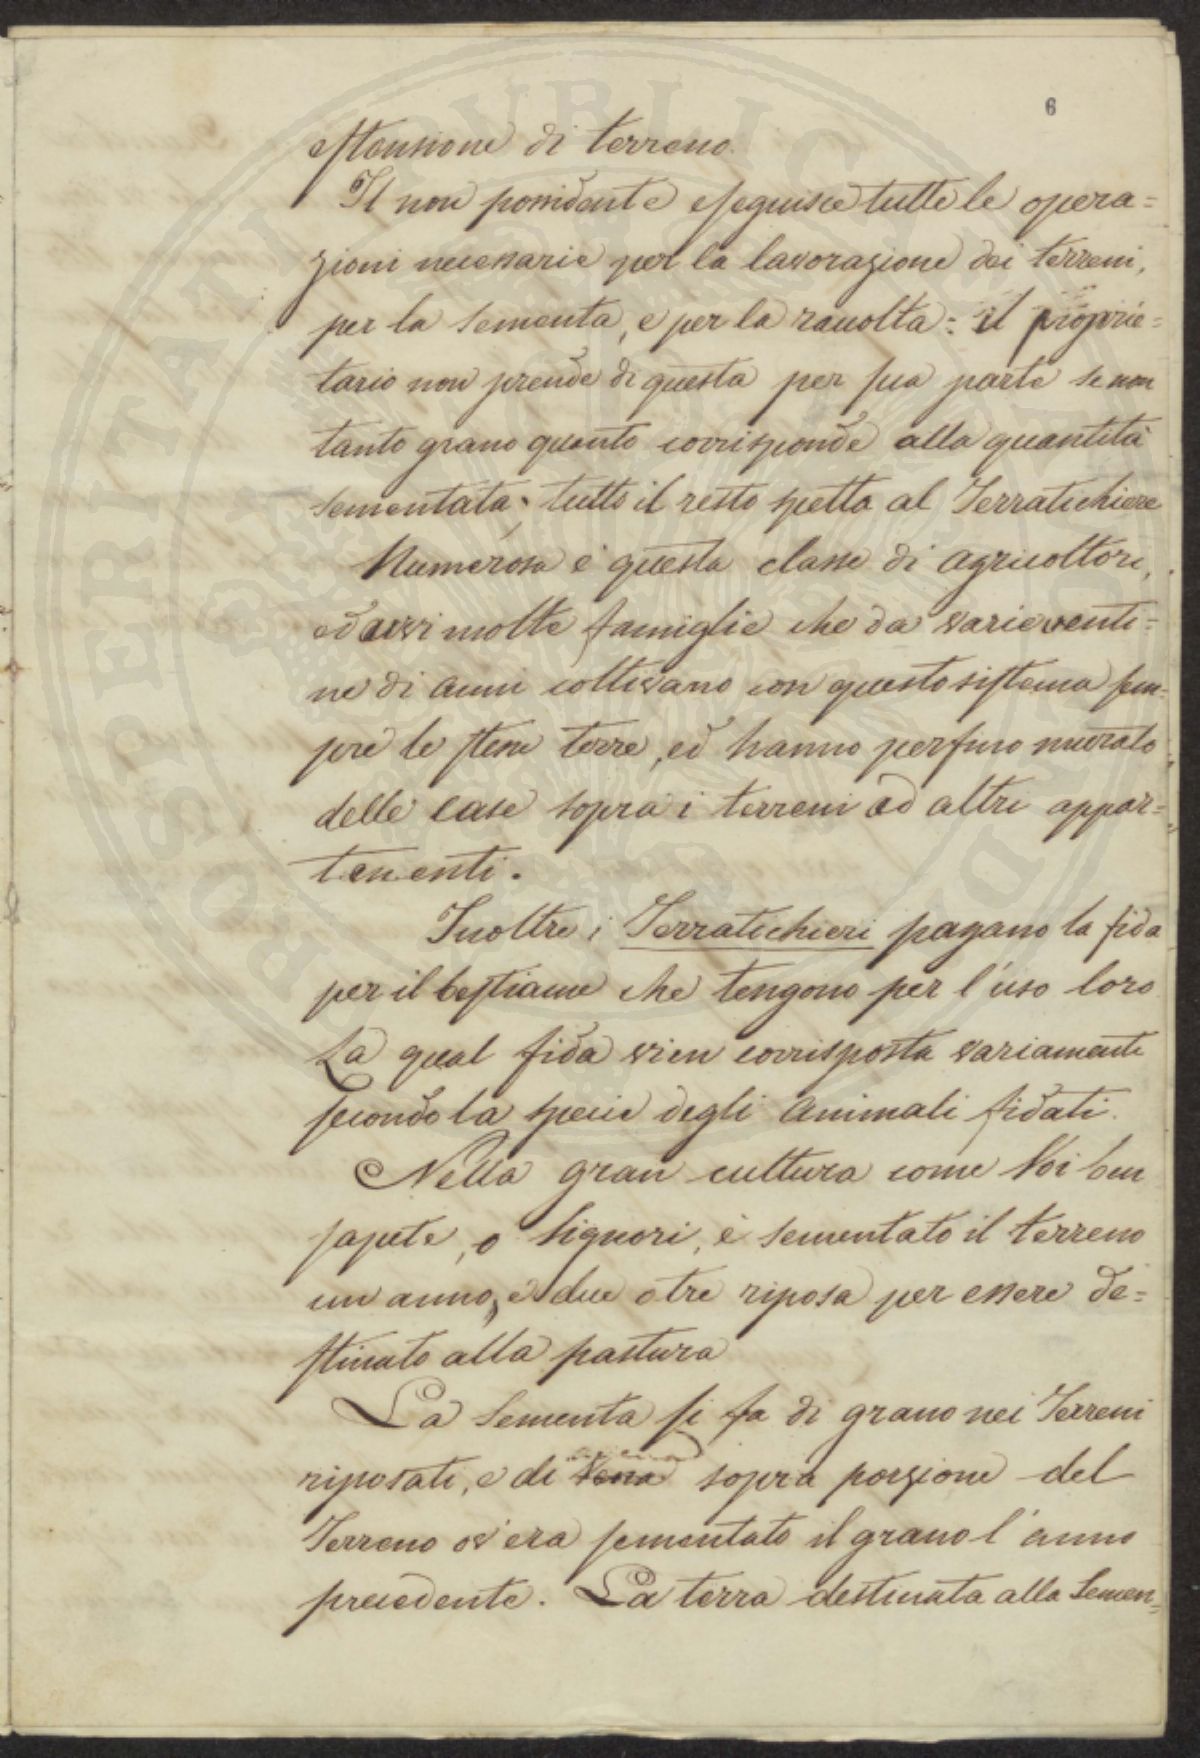 6
estensione di terreno.
Il non possidente eseguisce tutte le opera=
zioni necessarie per la lavorazione dei terreni,
per la sementa, e per la raccolta: il proprie=
tario non prende di questa per sua parte se non
tanto grano quanto corrisponde alla quantità
sementata; tutto il resto spetta al Terratichiere
Numerosa è questa classe di agricoltori,
ed avvi molte famiglie che da varie venti=
ne di anni coltivano con questo sistema sem=
pre le stesse terre, ed hanno perfino murato
delle case sopra i terreni ad altri appar=
tenenti.
Inoltre i Terratichieri pagano la fida
per il bestiame che tengono per l'uso loro
La qual fida vien corrisposta variamente
secondo la specie degli animali fidati.
Nella gran cultura come Voi ben
sapete, o Signori, è sementato il terreno
un anno, e due o tre riposa per essere de=
stinato alla pastura
La Sementa si fa di grano nei Terreni
riposati, e di Vena sopra porzione del
Terreno ov'era sementato il grano l'anno
precedente. La terra destinata alla Semen=
PROSPERITATI PUBLICAE